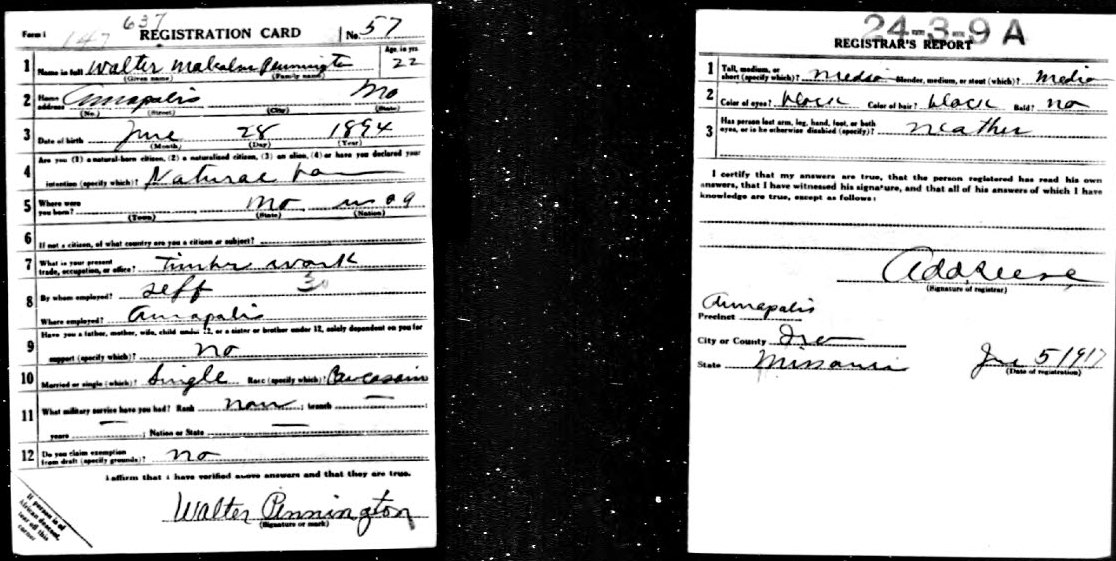 637
Form 1 147 REGISTRATION CARD No. 57
1 Name in full Walter Malcolm Pennington Age, in yrs. 22
(Given name) (Family name)
2 Home address Annapolis Mo
(No.) (Street) (City) (State)
3 Date of birth June 28 1894
(Month) (Day) (Year)
4 Are you (1) a natural-born citizen, (2) a naturalized citizen, (3) an alien, (4) or have you declared your
intention (specify which)? Natural
5 Where were you born? Mo
(Town) (State) (Nation)
6 If not a citizen, of what country are you a citizen or subject?
7 What is your present trade, occupation, or office? Timber work
8 By whom employed? Self 30
Where employed? Annapolis
9 Have you a father, mother, wife, child under 12, or a sister or brother under 12, solely dependent on you for
support (specify which)? no
10 Married or single (which)? Single Race (specify which)? Caucasain
11 What military service have you had? Rank ; branch — ;
years — ; Nation or State —
12 Do you claim exemption from draft (specify grounds)? no
I affirm that I have verified above answers and that they are true.
Walter Pennington
(Signature or mark)
If person is of
African descent,
tear off this
corner
24-3-9 A
REGISTRAR'S REPORT
1 Tall, medium, or short (specify which)? media Slender, medium, or stout (which)? media
2 Color of eyes? black Color of hair? black Bald? no
3 Has person lost arm, leg, hand, foot, or both eyes, or is he otherwise disabled (specify)?
I certify that my answers are true, that the person registered has read his own
answers, that I have witnessed his signature, and that all of his answers of which I have
knowledge are true, except as follows:
(Signature of registrar)
Precinct Annapolis
City or County
State Missouri June 5 1917
(Date of registration)